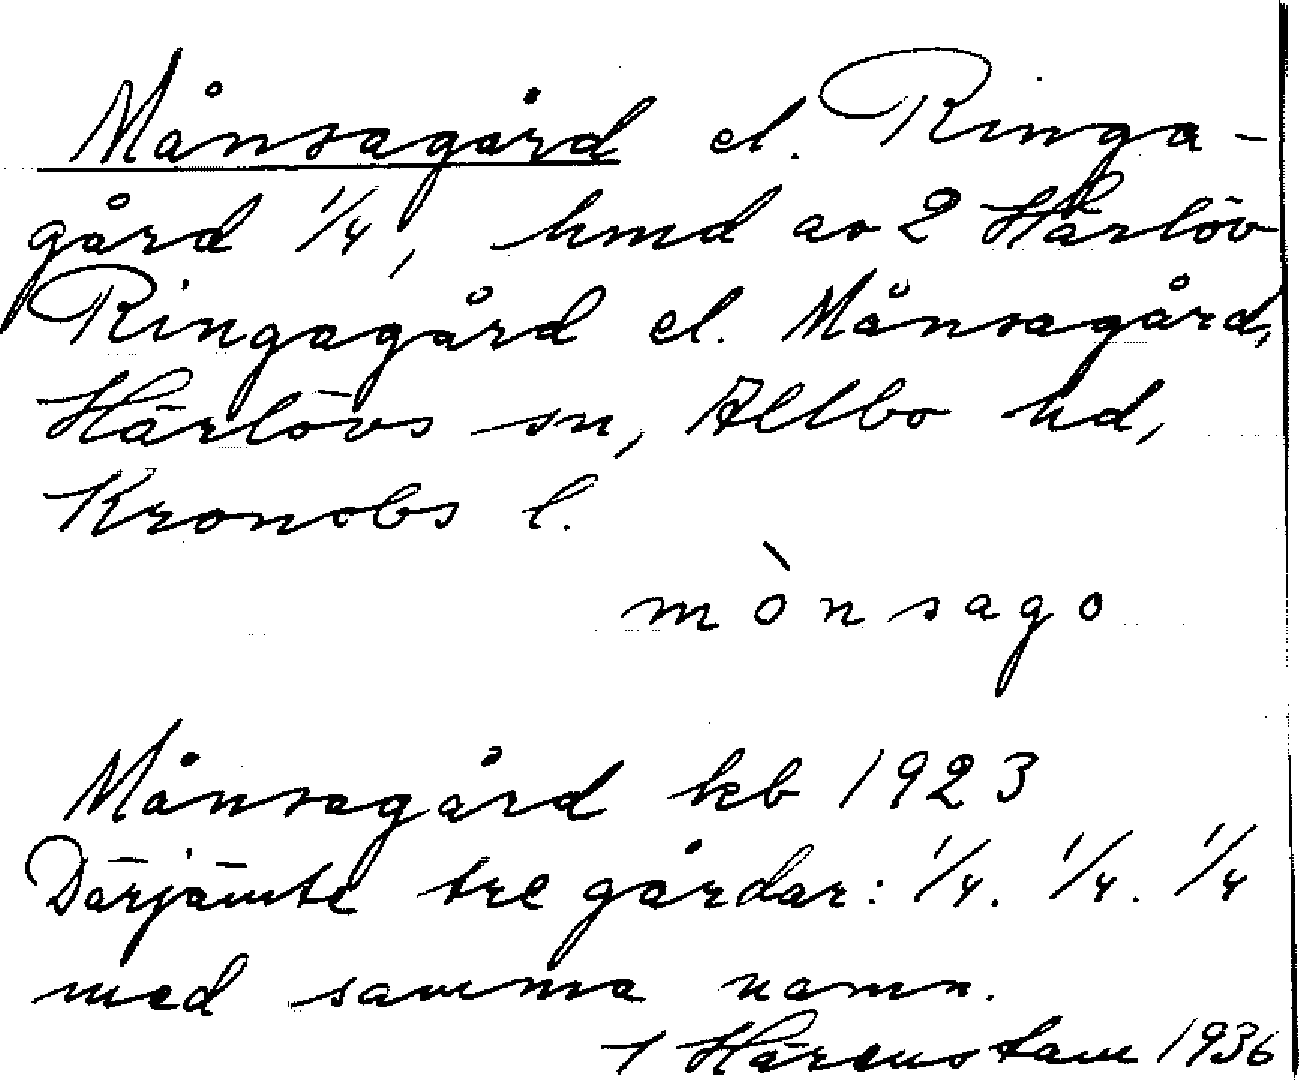 Månsagård el. Ringa-
gård 1/4, hmd av 2 Härlöv
Ringagård el. Månsagård,
Härlövs sn, Allbo hd,
Kronobs l.
mònsago
Månsagård kb 1923
Därjämte tre gårdar: 1/4. 1/4. 1/4
med samma namn.
Härenstam 1936